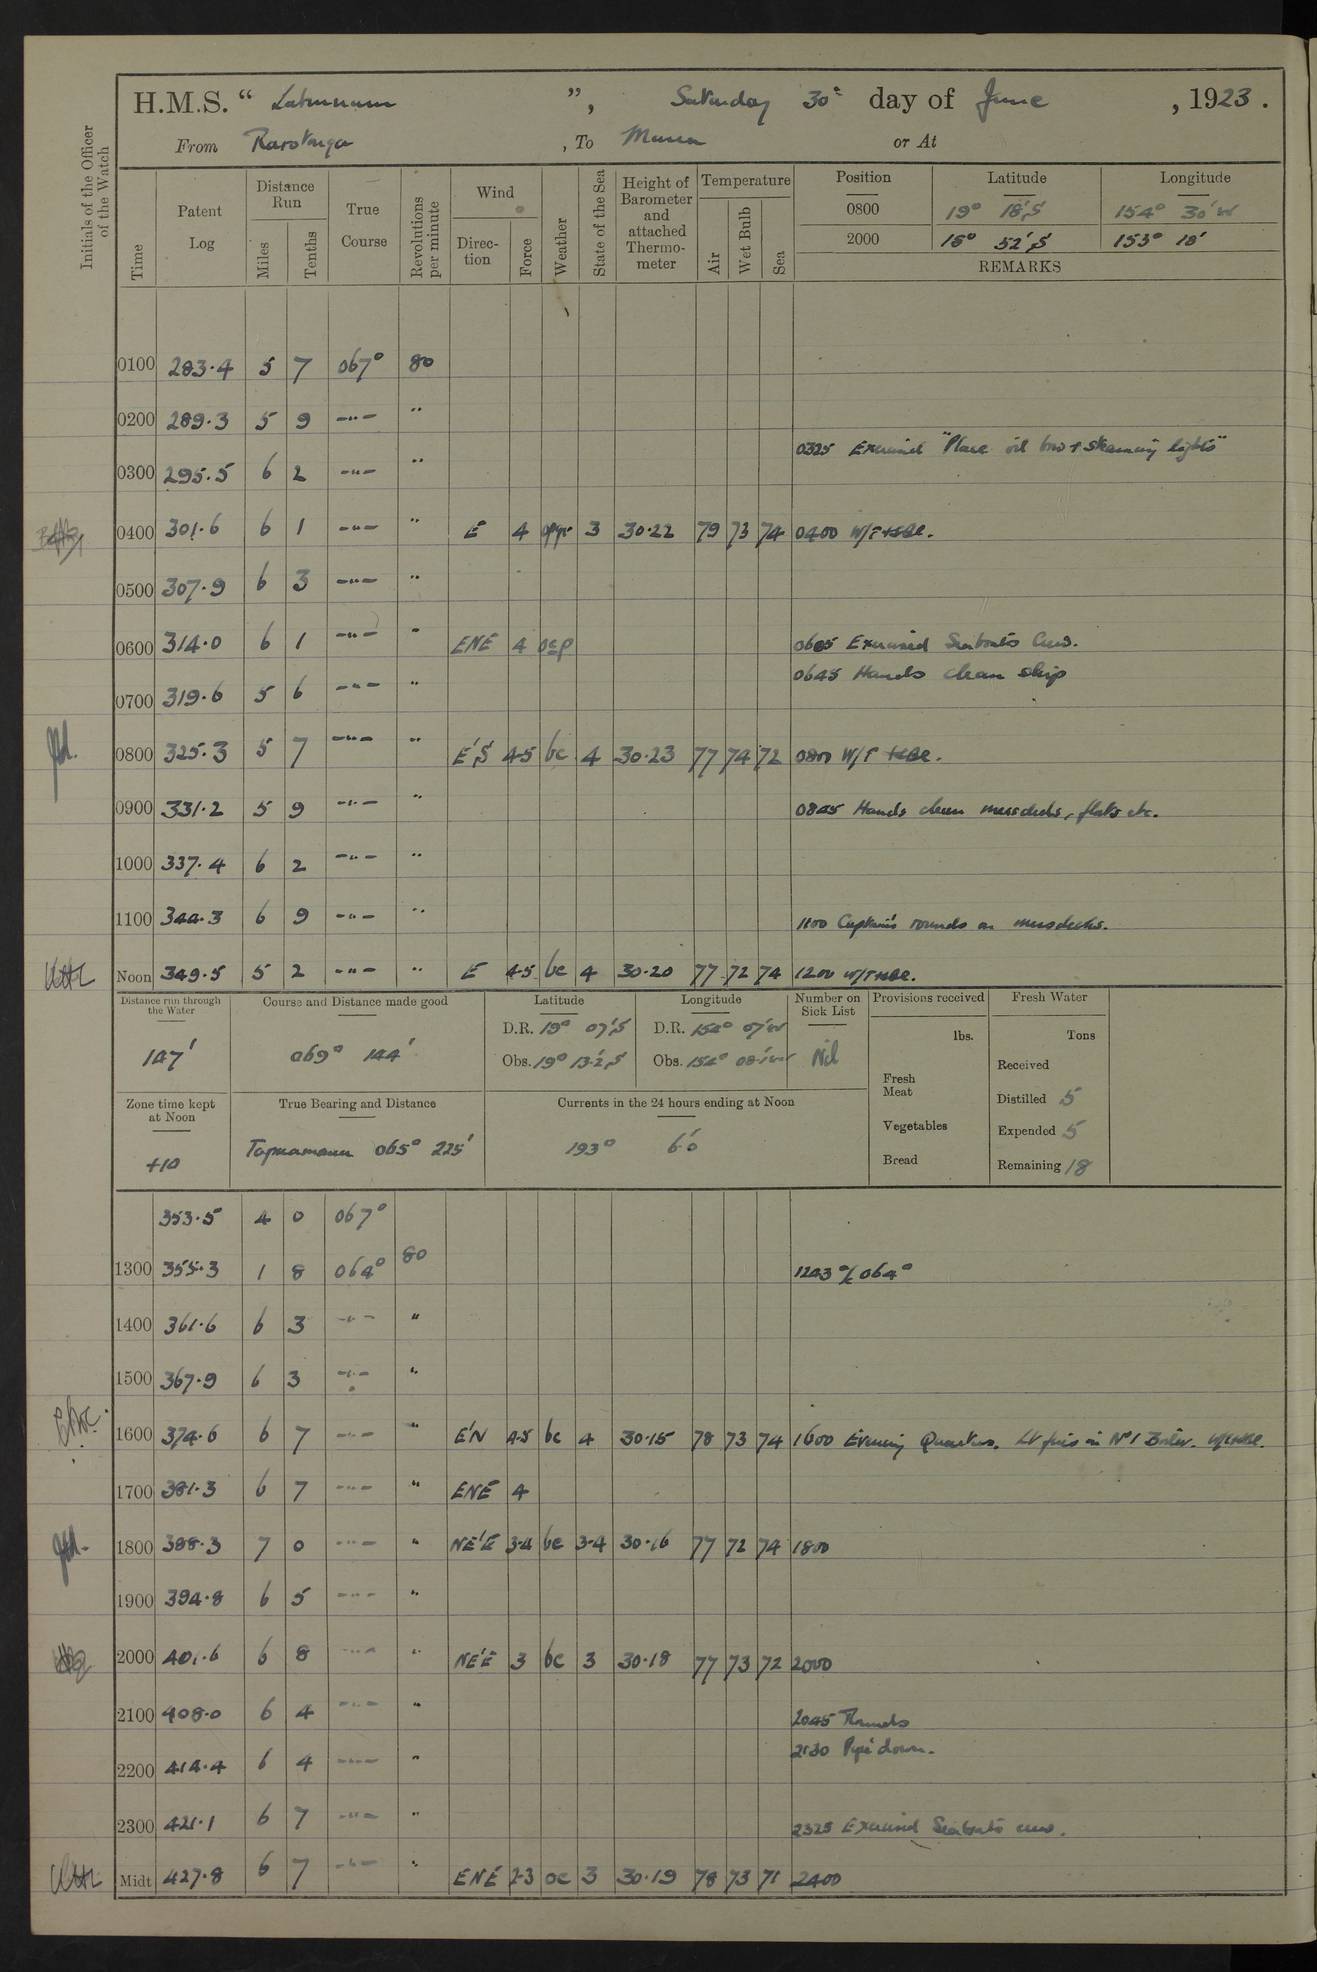 H.M.S. “ Laburnum ”, Saturday 30th day of June , 1923 .
From Rarotonga , To or At
Initials of the Officer of the Watch
Time
Patent Log
Distance Run
Miles
Tenths
True Course
Revolutions per minute
Wind
Direction
Force
Weather
State of the Sea
Height of Barometer and attached Thermometer
Temperature
Air
Wet Bulb
Sea
Position Latitude Longitude
0800 19° 18'S 154° 30'W
2000 18° 52'S 153° 18'
REMARKS
0100 283.4 5 7 067° 80
0200 289.3 5 9 -"- "
0325 Exercised "Place oil bow & steaming lights"
0300 295.5 6 2 -"- "
0400 301.6 6 1 -"- " E 4 3 30.22 79 73 74 0400 W/T
0500 307.9 6 3 -"- "
0600 314.0 6 1 -"- " ENE 4 ocp 0605 Exercised Seaboats Crew.
0645 Hands clean ship
0700 319.6 5 6 -"- "
0800 325.3 5 7 -"- " E'S 4-5 bc 4 30.23 77 74 72 0800 W/T
0900 331.2 5 9 -"- " 0845 Hands clean messdecks, flats etc.
1000 337.4 6 2 -"- "
1100 344.3 6 9 -"- " 1100 Captain's rounds on messdecks.
Noon 349.5 5 2 -"- " E 4-5 bc 4 30.20 77 72 74 1200 W/T
Distance run through the Water
147'
Course and Distance made good
069° 144'
Latitude
D.R. 19° 07'S
Obs. 19° 13.2'S
Longitude
D.R. 154° 07'W
Obs. 154° 08.1'W
Number on Sick List
Nil
Provisions received
lbs.
Fresh Meat
Vegetables
Bread
Fresh Water
Tons
Received
Distilled 5
Expended 5
Remaining 18
Zone time kept at Noon
+10
True Bearing and Distance
Tapuamanu 065° 225'
Currents in the 24 hours ending at Noon
193° 6.0'
353.5 4 0 067°
1300 355.3 1 8 064° 80 1243 a/c 064°
1400 361.6 6 3 -"- "
1500 367.9 6 3 -"- "
1600 374.6 6 7 -"- " E'N 4-5 bc 4 30.15 78 73 74 1600 Evening Quarters. Lt fires in No 1 Boiler.
1700 381.3 6 7 -"- " ENE 4
1800 388.3 7 0 -"- " NE'E 3-4 bc 3-4 30.16 77 72 74 1800
1900 394.8 6 5 -"- "
2000 401.6 6 8 -"- " NE'E 3 bc 3 30.18 77 73 72 2000
2100 408.0 6 4 -"- " 2045 Rounds
2130 Pipe down.
2200 414.4 6 4 -"- "
2300 421.1 6 7 -"- " 2325 Exercised Seaboats crew.
Midt 427.8 6 7 -"- " ENE 2-3 oc 3 30.19 78 73 71 2400